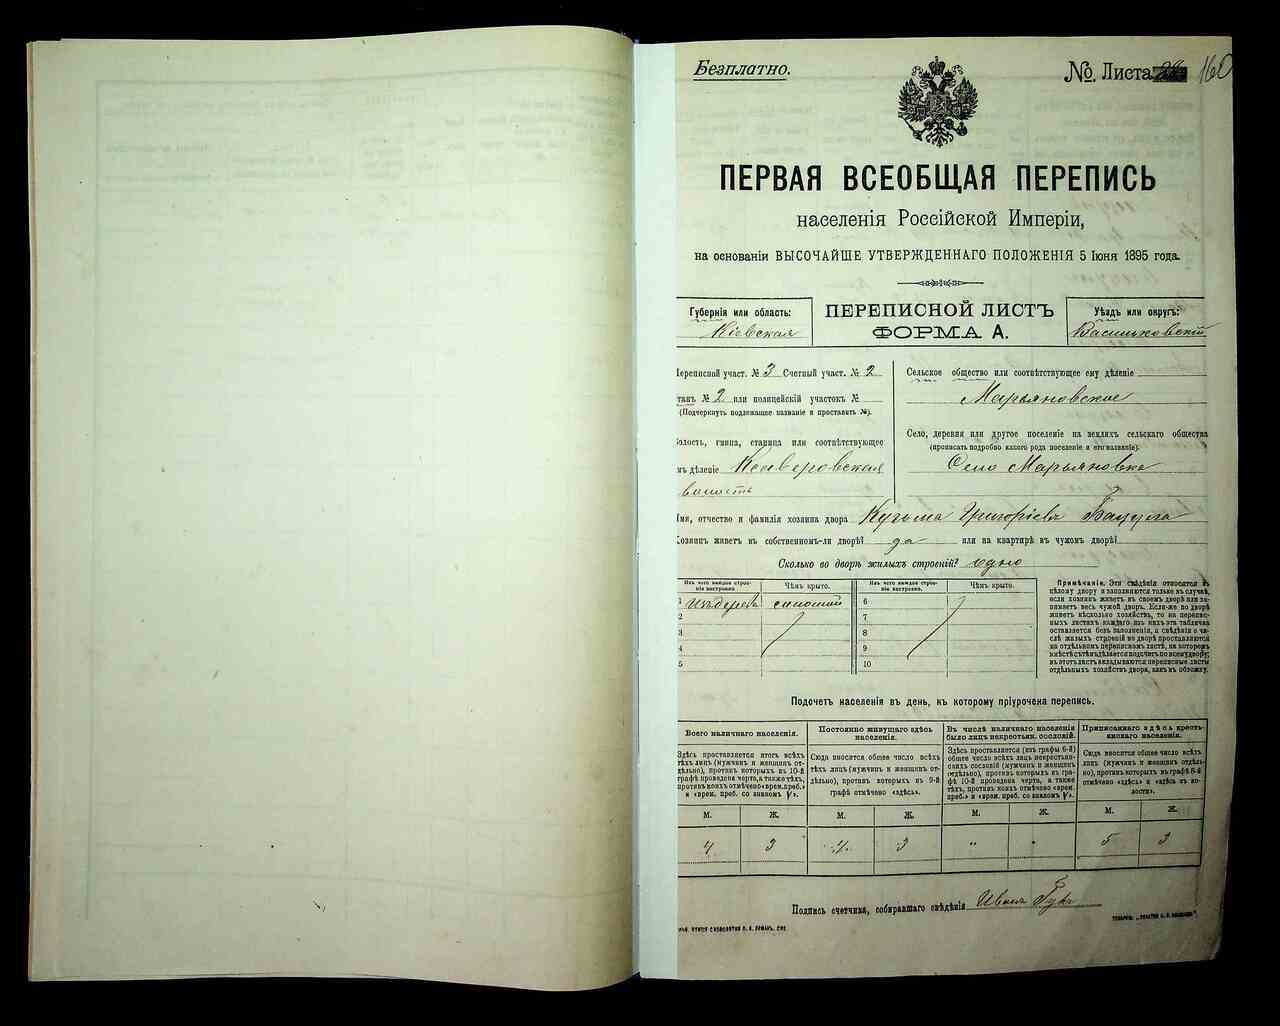 Безплатно.
№. Листа 160
ПЕРВАЯ ВСЕОБЩАЯ ПЕРЕПИСЬ
населенія Россійской Имперіи,
на основаніи ВЫСОЧАЙШЕ УТВЕРЖДЕННАГО ПОЛОЖЕНІЯ 5 Іюня 1895 года.
Губернія или область:
Кіевская
ПЕРЕПИСНОЙ ЛИСТЪ
ФОРМА А.
Уѣздъ или округъ:
Васильковскій
Переписной участ. № 3 Счетный участ. № 2
станъ № 2 или полицейскій участокъ №
(Подчеркнуть подлежащее названіе и проставить №).
Волость, гмина, станица или соотвѣтствующее
имъ дѣленіе
волость
Сельское общество или соотвѣтствующее ему дѣленіе
Марьяновское
Село, деревня или другое поселеніе на земляхъ сельскаго общества
(прописать подробно какого рода поселеніе и его названіе).
Село Марьяновка
Имя, отчество и фамилія хозяина двора Кузьма Григоріевъ
Хозяинъ живетъ въ собственномъ-ли дворѣ? да или на квартирѣ въ чужомъ дворѣ?
Сколько во дворѣ жилыхъ строеній? одно
Изъ чего каждое строе-
ніе выстроено
Чѣмъ крыто.
1 Изъ дерева соломой
2
3
4
5
Изъ чего каждое строе-
ніе выстроено.
Чѣмъ крыто.
6
7
8
9
10
Примѣчаніе. Эти свѣдѣнія относятся къ
цѣлому двору и заполняются только въ случаѣ,
если хозяинъ живетъ въ своемъ дворѣ или за-
нимаетъ весь чужой дворъ. Если-же по дворѣ
живетъ нѣсколько хозяйствъ, то на перепис-
ныхъ листахъ каждаго изъ нихъ эта табличка
оставляется безъ заполненія, а свѣдѣнія о чи-
слѣ жилыхъ строеній во дворѣ проставляются
на отдѣльномъ переписномъ листѣ, на которомъ
вмѣстѣ съ тѣмъ дѣлается подсчетъ по всему двору;
въ этотъ листъ вкладываются переписные листы
отдѣльныхъ хозяйствъ двора, какъ въ обложку.
Подсчетъ населенія въ день, къ которому пріурочена перепись.
Всего наличнаго населенія.
Здѣсь проставляется итогъ всѣхъ
тѣхъ лицъ (мужчинъ и женщинъ от-
дѣльно), противъ которыхъ въ 10-й
графѣ проведена черта, а также тѣхъ,
противъ коихъ отмѣчено «врем. преб.»
и «врем. преб. со знакомъ V».
М. Ж.
4 3
Постоянно живущаго здѣсь
населенія.
Сюда вносится общее число всѣхъ
тѣхъ лицъ (мужчинъ и женщинъ от-
дѣльно), противъ которыхъ въ 9-й
графѣ отмѣчено «здѣсь».
М. Ж.
4 3
Въ числѣ наличнаго населенія
было лицъ некрестьян. сословій.
Здѣсь проставляется (изъ графы 6-й)
общее число всѣхъ лицъ некрестьян-
скихъ сословій (мужчинъ и женщинъ
отдѣльно), противъ которыхъ въ гра-
фѣ 10-й проведена черта, а также
тѣхъ, противъ коихъ отмѣчено «врем.
преб.» и «врем. преб. со знакомъ V».
М. Ж.
" "
Приписаннаго здѣсь кресть-
янскаго населенія.
Сюда вносится общее число всѣхъ
лицъ (мужчинъ и женщинъ отдѣль-
но), противъ которыхъ въ графѣ 8-й
отмѣчено «здѣсь» и «здѣсь въ во-
лости».
М. Ж.
5 3
Подпись счетчика, собиравшаго свѣдѣнія Иванъ